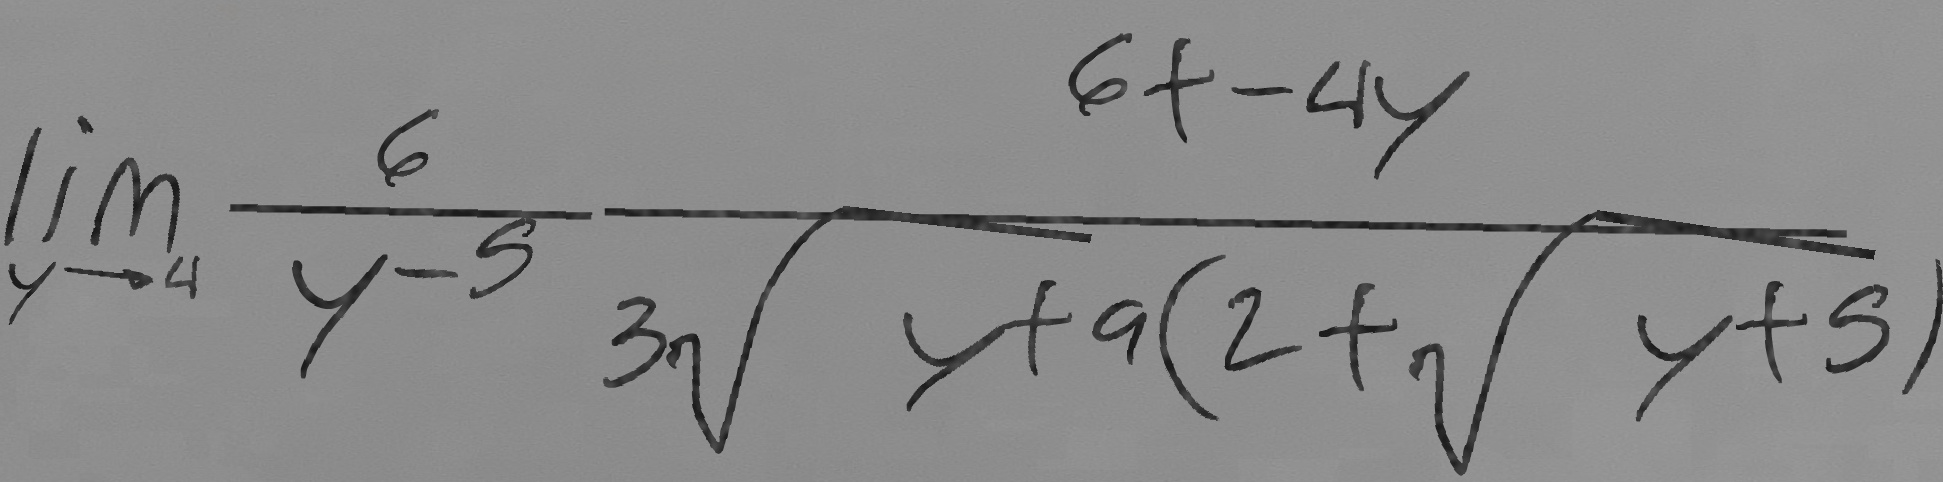 \lim_{y \to 4} \frac{6}{y-5} \frac{6+-4y}{3\sqrt{y+9}(2+\sqrt{y+5})}